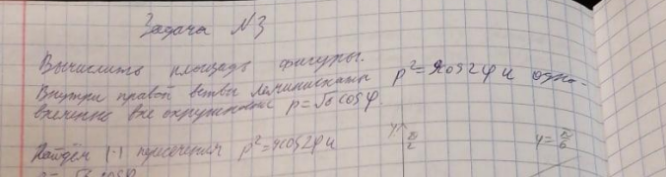 Задача №3
Вычислить площадь фигуры.
Внутри правой ветви лемнискаты ρ²=9cos2φ и одно-
временно вне окружности ρ=√6 cosφ.
Найдём (·) пересечения ρ²=9cos2φ и
π/2
φ=π/6
ρ=√6 cosφ